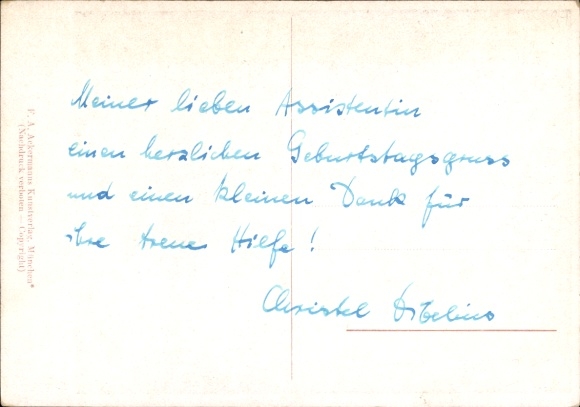 Meiner lieben Assistentin
einen herzlichen Geburtstagsgruss
und einen kleinen Dank für
ihre treue Hilfe!
Christel Dibelius
F. A. Ackermanns Kunstverlag, München*
(Nachdruck verboten — Copyright)